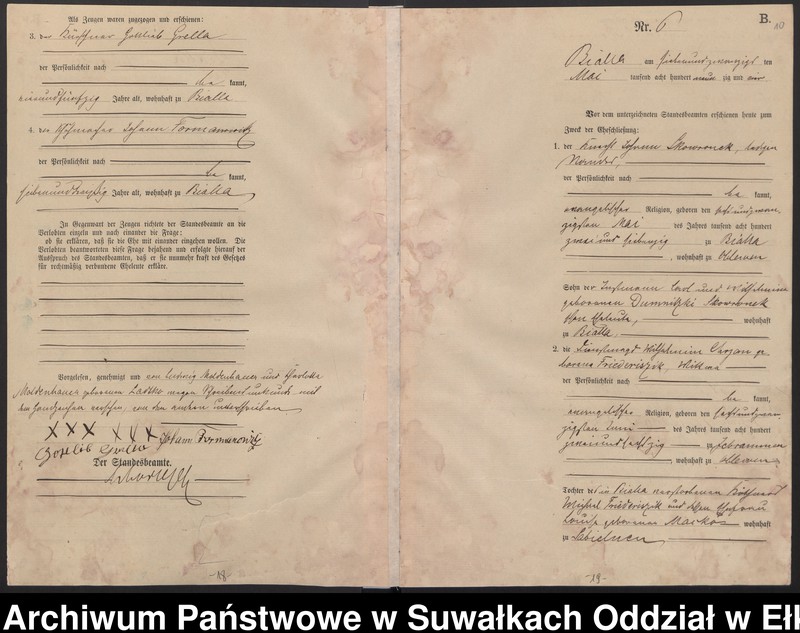 Als Zeugen waren zugezogen und erschienen:
3. der Gottlieb Grella
der Persönlichkeit nach
be kannt,
einundfünfzig Jahre alt, wohnhaft zu Bialla
4. der Johann Formanowitz
der Persönlichkeit nach
be kannt,
Jahre alt, wohnhaft zu Bialla,
In Gegenwart der Zeugen richtete der Standesbeamte an die
Verlobten einzeln und nach einander die Frage:
ob sie erklären, daß sie die Ehe mit einander eingehen wollen. Die
Verlobten beantworteten diese Frage bejahend und erfolgte hierauf der
Ausspruch des Standesbeamten, daß er sie nunmehr kraft des Gesetzes
für rechtmäßig verbundene Eheleute erkläre.
Vorgelesen, genehmigt und von Ludwig Moldenhauer und Charlotte
Moldenhauer geborenen wegen Schreibensunkunde mit
den Handzeichen versehen, von den anderen unterschrieben
XXX XXX Johann Formanowitz
Gottlieb Grella
Der Standesbeamte.
-18-
B.
10
Nr. 6
Bialla am siebenundzwanzigs ten
Mai tausend acht hundert neun zig und
Vor dem unterzeichneten Standesbeamten erschienen heute zum
Zweck der Eheschließung:
1. der Knecht Johann Skowronek,
der Persönlichkeit nach
be kannt,
evangelischer Religion, geboren den
zigsten Mai des Jahres tausend acht hundert
zwei und siebenzig zu Bialla
, wohnhaft zu
Sohn der Carl und Wilhelmine
geborenen Dumnitzki Skowronek
schen Eheleute, wohnhaft
zu Bialla.
2. die Dienstmagd Wilhelmine ge
borene Friederiszik, Wittwe
der Persönlichkeit nach
be kannt,
evangelischer Religion, geboren den
zigsten Juni des Jahres tausend acht hundert
zweiundsechszig zu
, wohnhaft zu
Tochter des in Bialla verstorbenen
Michael Friederiszik und dessen Ehefrau
Louise geborenen Markos wohnhaft
zu
-19-
Archiwum Państwowe w Suwałkach Oddział w Ełk